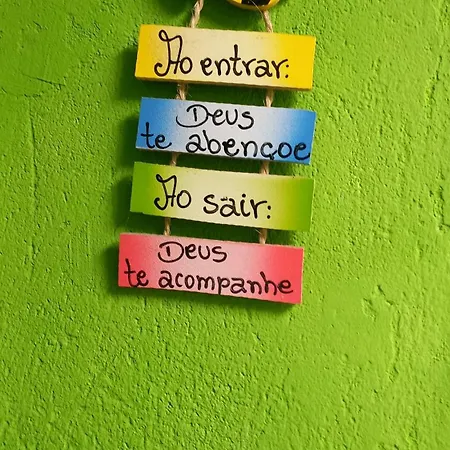 Ao entrar:
Deus
te abençoe
Ao sair:
Deus
te acompanhe